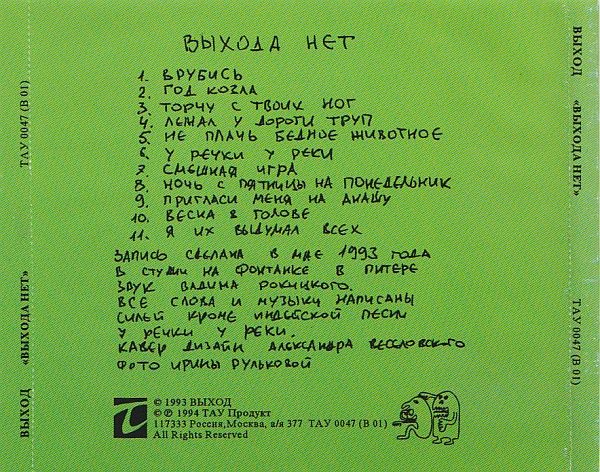 ВЫХОДА НЕТ
1. ВРУБИСЬ
2. ГОД КОЗЛА
3. ТОРЧУ С ТВОИХ НОГ
4. ЛЕЖАЛ У ДОРОГИ ТРУП
5. НЕ ПЛАЧЬ БЕДНОЕ ЖИВОТНОЕ
6. У РЕЧКИ У РЕКИ
7. СМЕШНАЯ ИГРА
8. НОЧЬ С ПЯТНИЦЫ НА ПОНЕДЕЛЬНИК
9. ПРИГЛАСИ МЕНЯ НА АНАШУ
10. ВЕСНА В ГОЛОВЕ
11. Я ИХ ВЫДУМАЛ ВСЕХ
ЗАПИСЬ СДЕЛАНА В МАЕ 1993 ГОДА
В СТУДИИ НА ФОНТАНКЕ В ПИТЕРЕ
ЗВУК ВАДИМА РОКИЦКОГО.
ВСЕ СЛОВА И МУЗЫКИ НАПИСАНЫ
СИЛЕЙ КРОМЕ ИНДЕЙСКОЙ ПЕСНИ
У РЕЧКИ У РЕКИ.
КАВЕР ДИЗАЙН АЛЕКСАНДРА ВЕСЕЛОВСКОГО
ФОТО ИРИНЫ РУЛЬКОВОЙ
© 1993 ВЫХОД
© ℗ 1994 ТАУ Продукт
117333 Россия,Москва, а/я 377 ТАУ 0047 (В 01)
All Rights Reserved
ВЫХОД «ВЫХОДА НЕТ» ТАУ 0047 (В 01)
ВЫХОД «ВЫХОДА НЕТ» ТАУ 0047 (В 01)